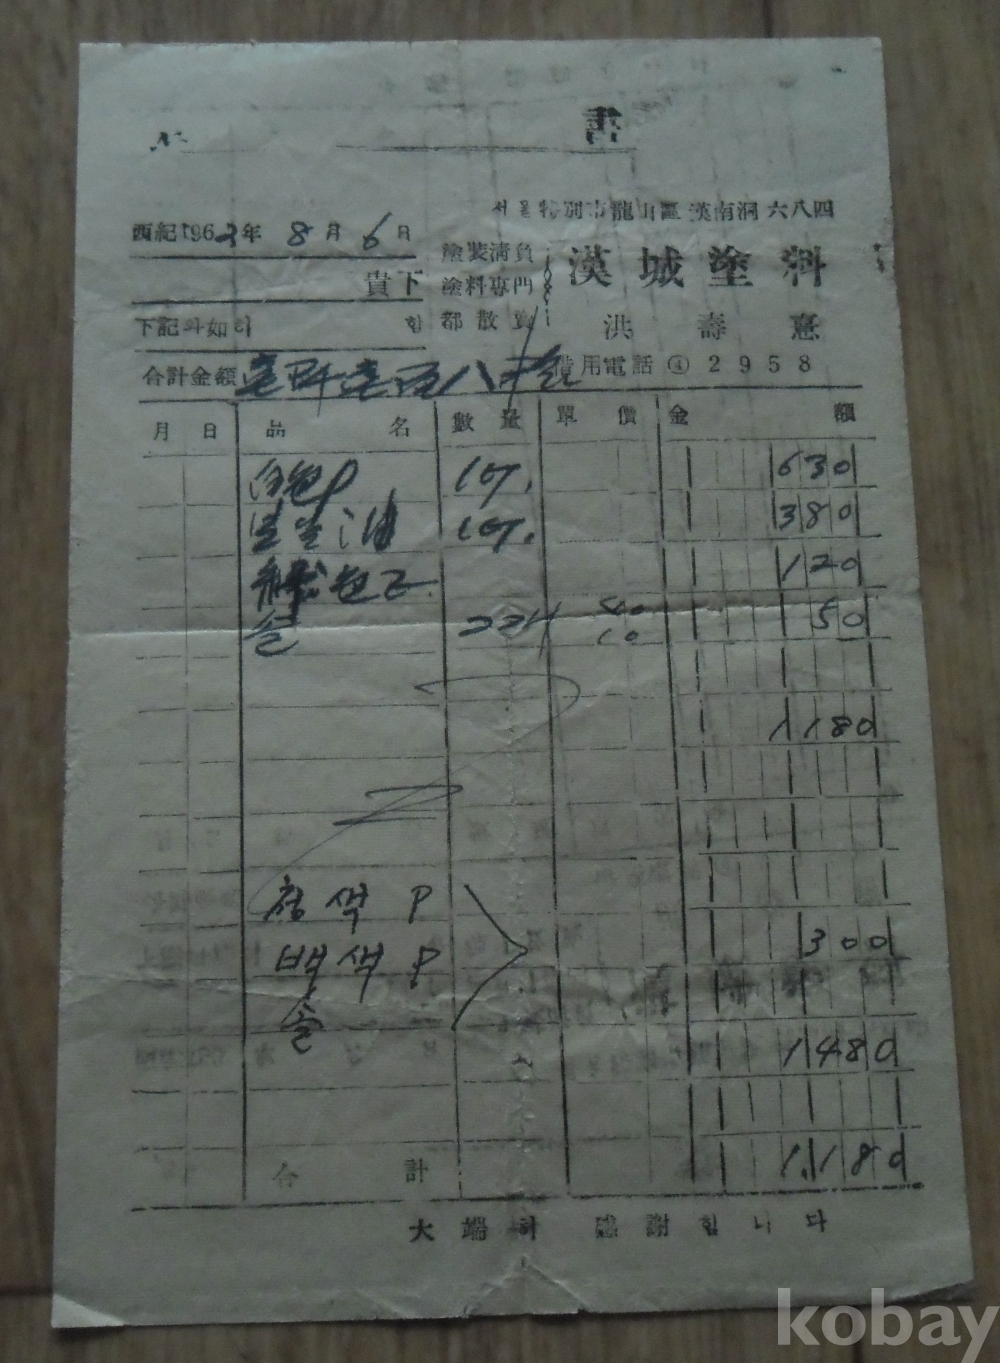 書
서울特別市龍山區漢南洞六八四
西紀1962年 8月 6日
塗裝請負
漢城塗料
貴下
塗料專門
都散賣
洪壽憙
下記와如히 함
借用電話 ④ 2958
合計金額
月 日 品 名 數 量 單 價 金 額
白色P 630
油 380
120
솔 2개 40 10 50
1180
청색 P
백색 P 300
솔
1480
合 計 1,180
大端히 感謝합니다
kobay